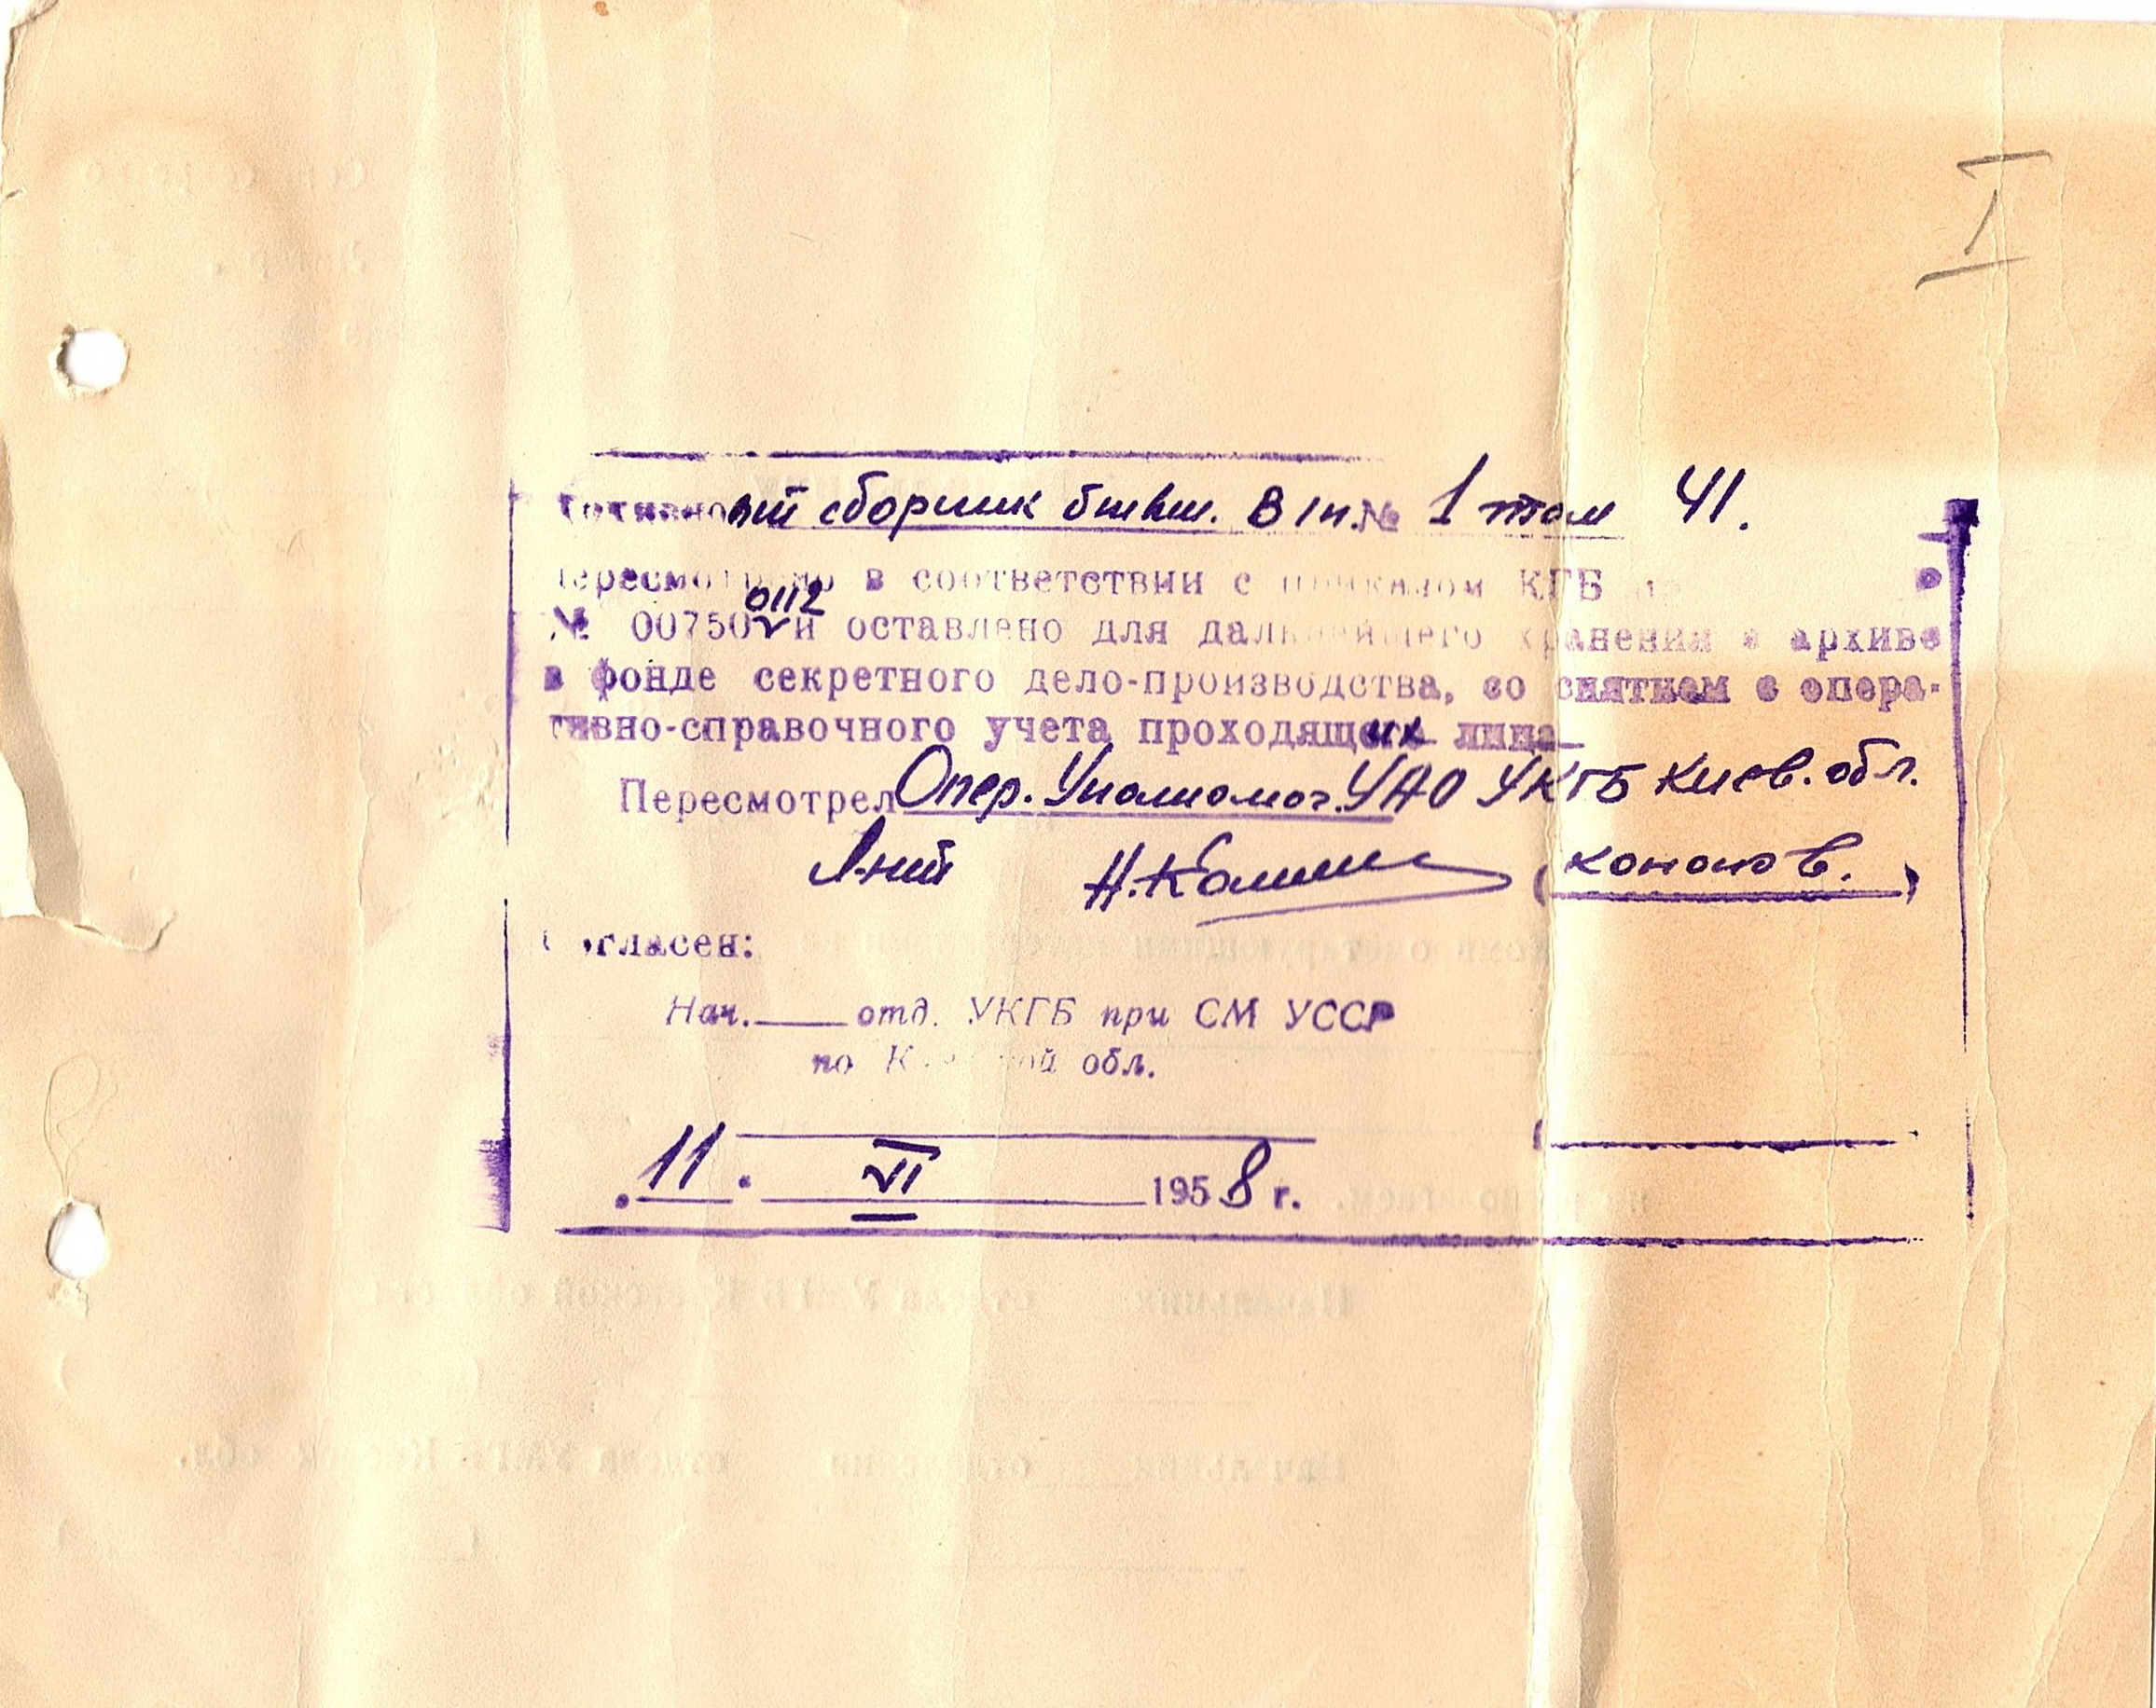 I
сборник бывш. № 1 том 41.
пересмотрено в соответствии с приказом КГБ
0112
№ 00750 и оставлено для дальнейшего хранения в архиве
в фонде секретного дело-производства, со снятием с опера-
тивно-справочного учета проходящих лица
Пересмотрел Опер. Уполномоч. УАО УКГБ Киев. обл.
Л-нт Н. (Кононов.)
Согласен:
Нач. отд. УКГБ при СМ УССР
по К обл.
11. VI 1958 г.